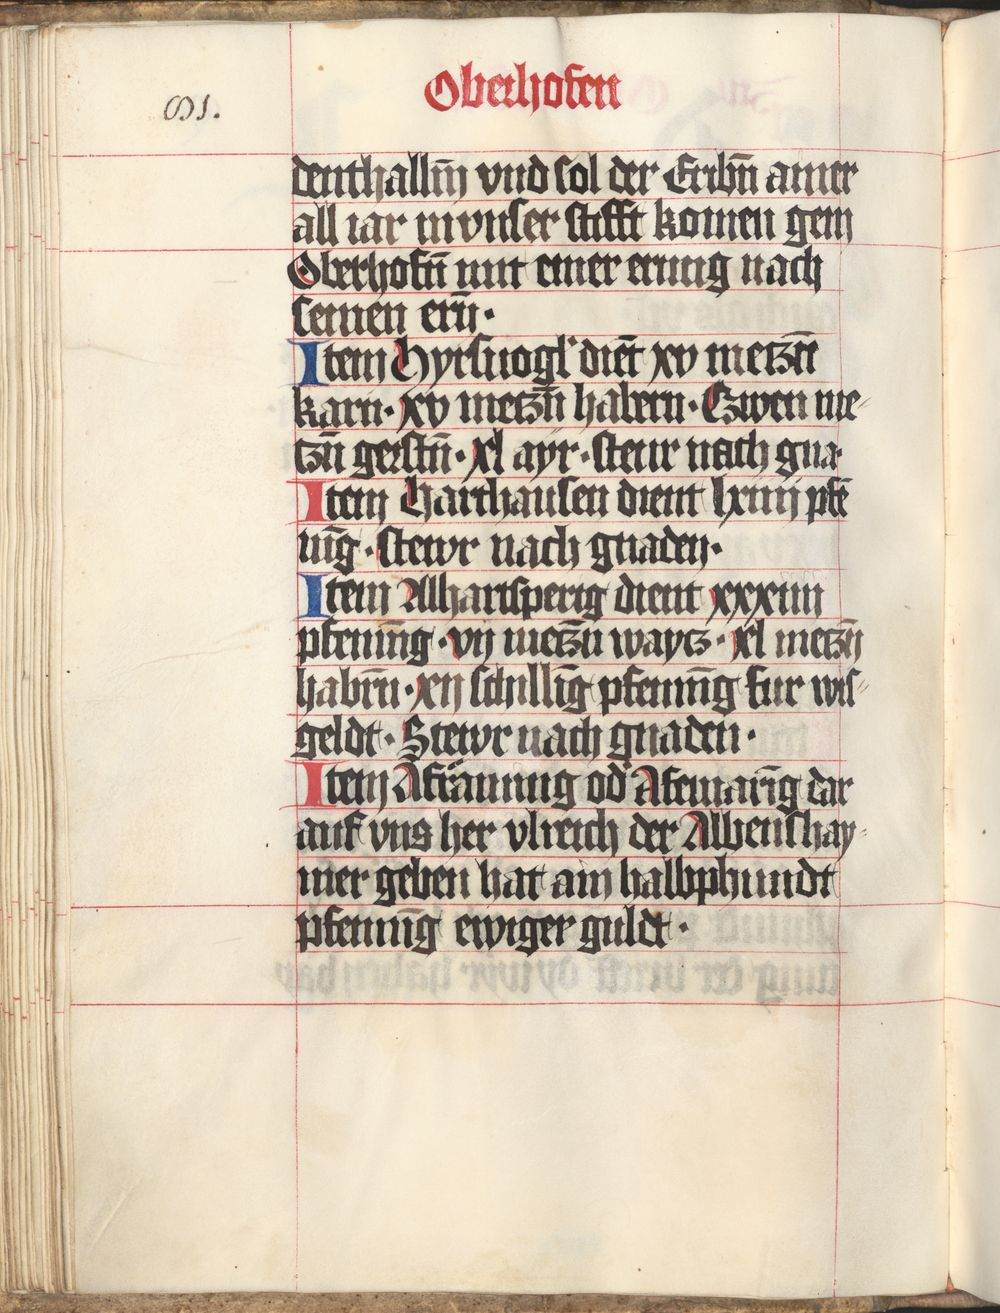 Oberhofen
denthallm̄ vnd sol der Eribn̄ ainer
all iar in vnser stifft komen gein
Oberhofn̄ mit einer erung nach
seinen ern̄·
Item Hyrsuogl dien̄t xv metzēn
karn· xv metzn̄ habern· Czwen me⸗
tzn̄ gerstn̄· xl ayr· steur nach gna·
Item Harthausen dient lxiiij pfē
nīg· stewr nach gnaden·
Item Alhartsperig dient xxxiiii
pfennīg· vij metzn̄ waytz· xl metzn̄
habrn̄· xij schillīg pfennīg fur wis⸗
geldt· Stewr nach gnaden·
Item Afrānnug od Afemarīg dar
auf vns her vlreich der Albenshay⸗
mer geben hat ain halbphundt
pfennīg ewiger guldt·